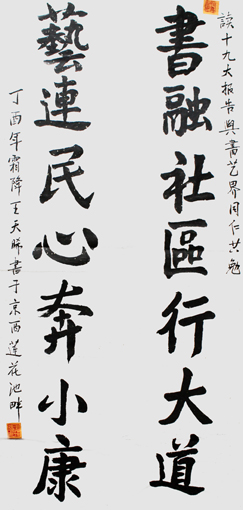 讀十九大报告與書艺界同仁共勉
書融社區行大道
藝連民心奔小康
丁酉年霜降王天勝書于京西蓮花池畔